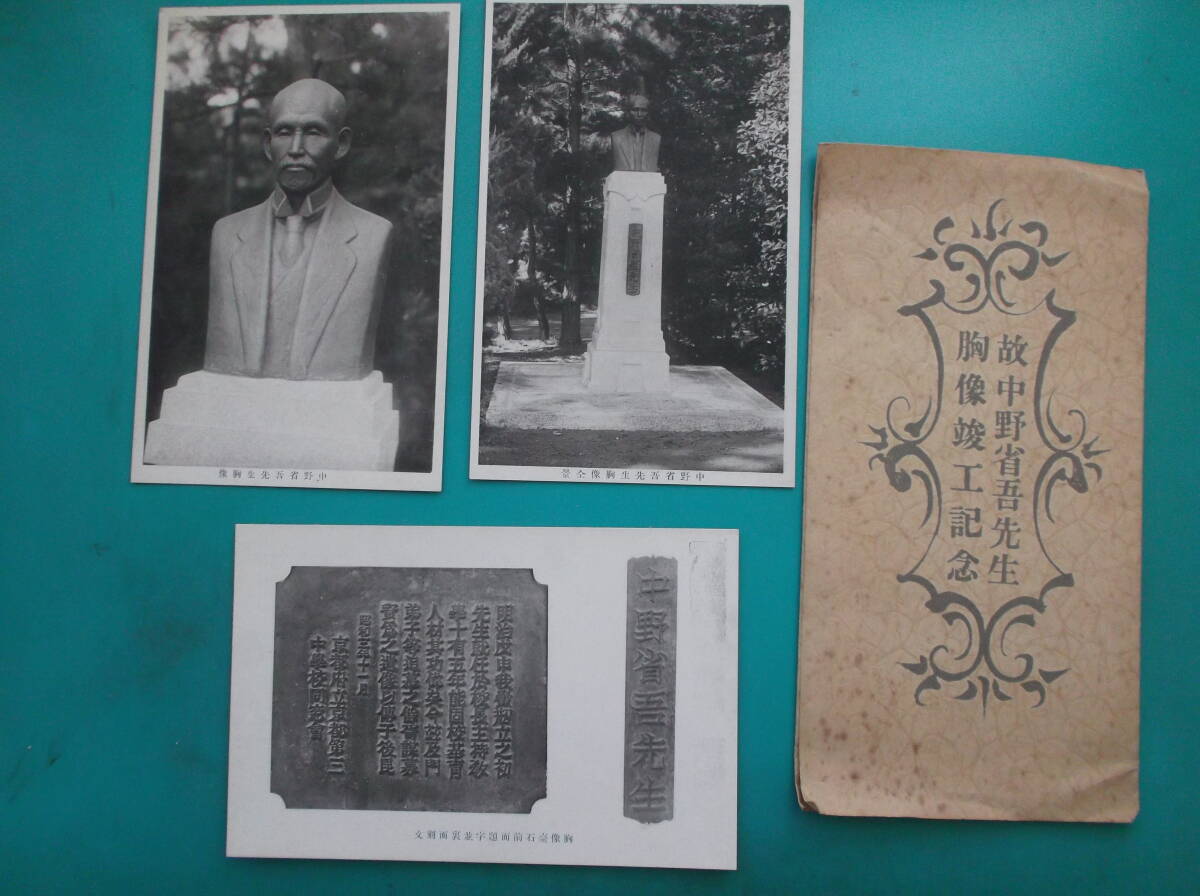 中野省吾先生胸像
中野省吾先生胸像仝景
故中野省吾先生
胸像竣工記念
中野省吾先生
明治戊申我黌剏立之初
先生就任於校長主持教
學十有五年能固校基育
人材其功偉矣今茲及門
弟子等追慕之餘胥謀募
資爲之造像以傳于後昆
昭和三年十一月
京都府立京都第三
中學校同窓會
胸像臺石前面題字並裏面刻文